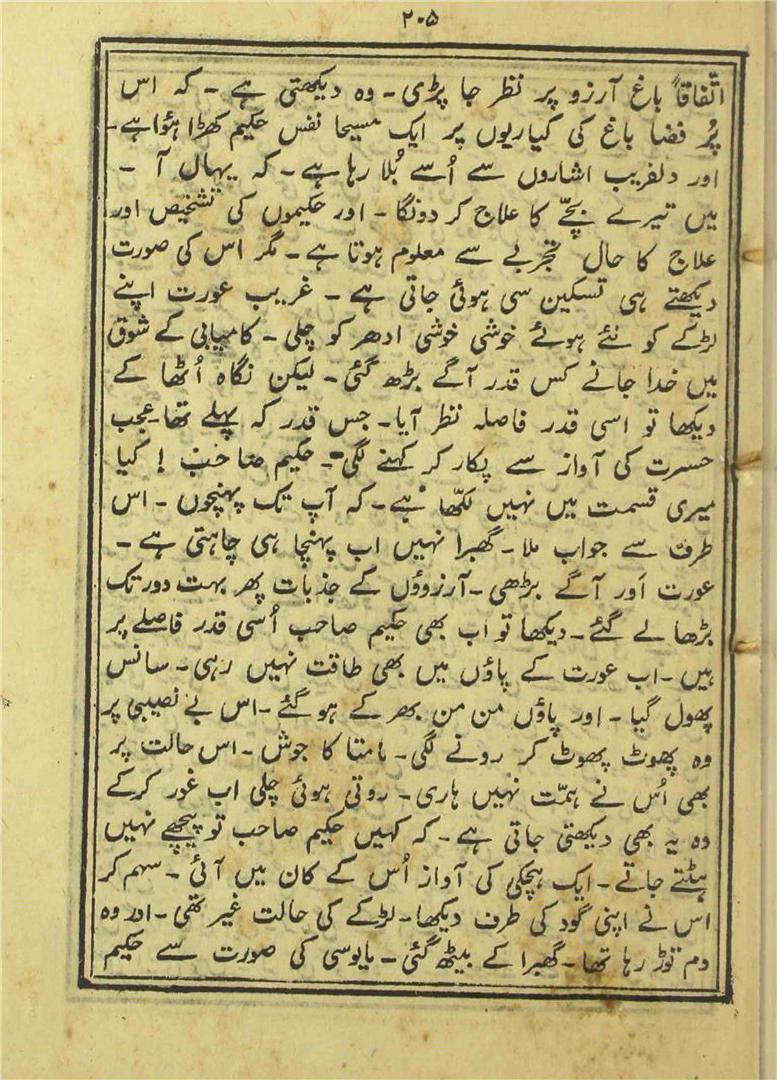 ۲۰۵
اتّفاقاً باغ آرزو پر نظر جا پڑی۔ وہ دیکھتی ہے ۔ کہ اس
پُر فضا باغ کی کیاریوں پر ایک مسیحا نفس حکیم کھڑا ہئوا ہے۔
اور دلفریب اشاروں سے اُسے بُلا رہا ہے۔ کہ یہاں آ ۔
میں تیرے بچّے کا علاج کر دونگا ۔ اور حکیموں کی تشخیص اور
علاج کا حال تجربے سے معلوم ہوتا ہے۔ مگر اس کی صورت
دیکھتے ہی تسکین سی ہوئی جاتی ہے ۔ غریب عورت اپنے
لڑکے کو لئے ہوئے خوشی خوشی ادھر کو چلی ۔ کامیابی کے شوق
میں خدا جانے کس قدر آگے بڑھ گئی ۔ لیکن نگاہ اُٹھا کے
دیکھا تو اسی قدر فاصلہ نظر آیا۔ جس قدر کہ پہلے تھا۔ عجب
حسرت کی آواز سے پکار کر کہنے لگی ۔ حکیم صاحب ! کیا
میری قسمت میں نہیں لکھّا ہے۔ کہ آپ تک پہنچوں ۔ اس
طرف سے جواب ملا۔ گھبرا نہیں اب پہنچا ہی چاہتی ہے ۔
عورت اَور آگے بڑھی ۔ آرزوؤں کے جذبات پھر بہت دور تک
بڑھا لے گئے ۔ دیکھا تو اب بھی حکیم صاحب اُسی قدر فاصلے پر
ہیں ۔ اب عورت کے پاؤں میں بھی طاقت نہیں رہی۔ سانس
پھول گیا ۔ اور پاؤں من من بھر کے ہو گئے ۔ اس بے نصیبی پر
وہ پھوٹ پھوٹ کر رونے لگی۔ مامتا کا جوش ۔ اس حالت پر
بھی اُس نے ہمّت نہیں ہاری۔ روتی ہوئی چلی اب غور کرکے
وہ یہ بھی دیکھتی جاتی ہے۔ کہ کہیں حکیم صاحب تو پیچھے نہیں
ہٹتے جاتے ۔ ایک ہچکی کی آواز اُس کے کان میں آئی ۔ سہم کر
اس نے اپنی گود کی طرف دیکھا۔ لڑکے کی حالت غیر تھی ۔ اور وہ
دم توڑ رہا تھا۔ گھبرا کے بیٹھ گئی ۔ مایوسی کی صورت سے حکیم